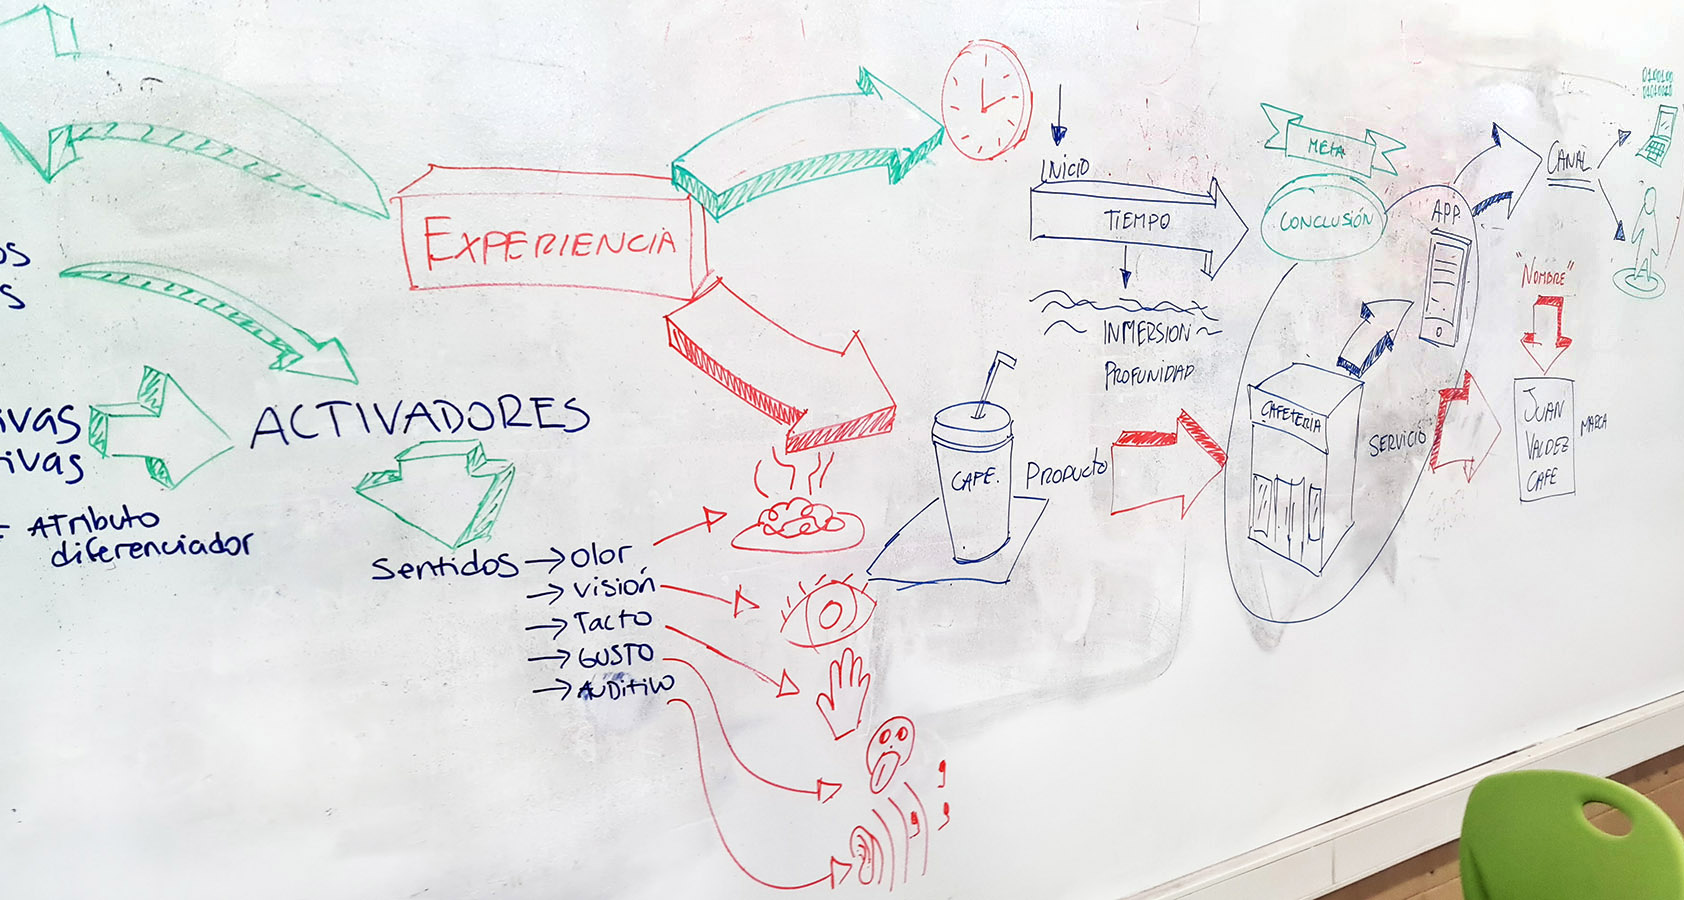 EXPERIENCIA
ACTIVADORES
= ATributo
diferenciador
Sentidos → Olor
→ Visión
→ Tacto
→ GUSTO
→ AUDitivo
INICIO
TIEMPO
INMERSION
PROFUNIDAD
META
CONCLUSIÓN
APP.
CANAL
0100100
CAFE.
PRODUCTO
CAFETERIA
SERVICIO
"NOMBRE"
JUAN
VALDEZ
CAFE
MARCA